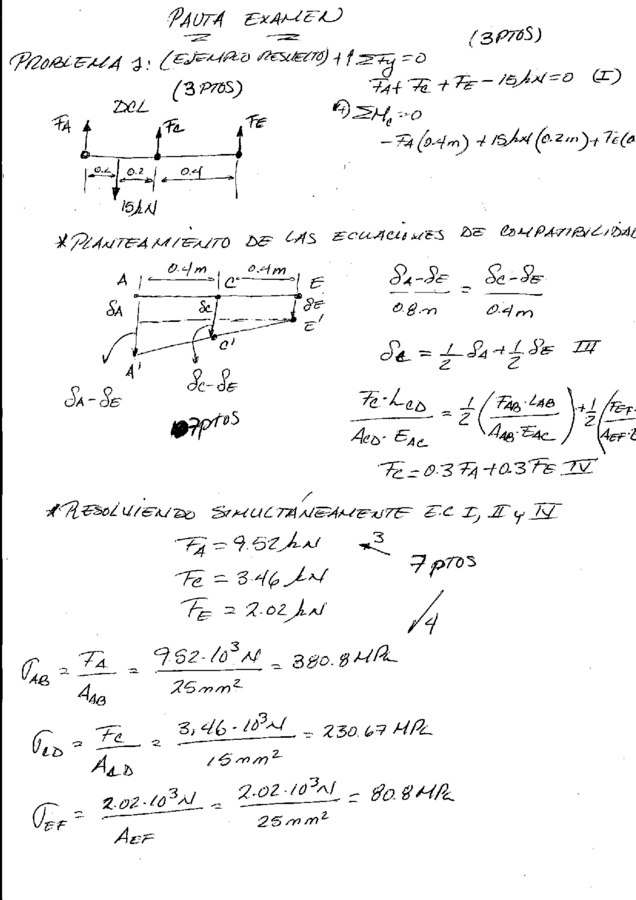 PAUTA EXAMEN
(3PTOS)
PROBLEMA 1: (EJEMPLO RESUELTO) +↑ ΣFy=0
FA + FC + FE - 15kN = 0 (I)
(3PTOS)
DCL
ΣMc=0
- FA(0.4m) + 15kN(0.2m) + FE(0
FA FC FE
0.2 0.2 0.4
15kN
*PLANTEAMIENTO DE LAS ECUACIONES DE COMPATIBILIDAD
0.4m 0.4m
A C E
δA δC δE
A' C' E'
δA-δE δC-δE
7PTOS
(δA-δE)/0.8m = (δC-δE)/0.4m
δC = 1/2 δA + 1/2 δE III
FC·LCD/(ACD·EAC) = 1/2 (FAB·LAB/(AAB·EAC)) + 1/2 (FEF·/AEF·
FC = 0.3 FA + 0.3 FE IV
*RESOLVIENDO SIMULTÁNEAMENTE EC I, II y IV
FA = 9.52 kN 3
7 PTOS
FC = 3.46 kN
FE = 2.02 kN
4
σAB = FA/AAB = 9.52·10³N/25mm² = 380.8 MPa
σCD = FC/ACD = 3,46·10³N/15mm² = 230.67 MPa
σEF = 2.02·10³N/AEF = 2.02·10³N/25mm² = 80.8 MPa